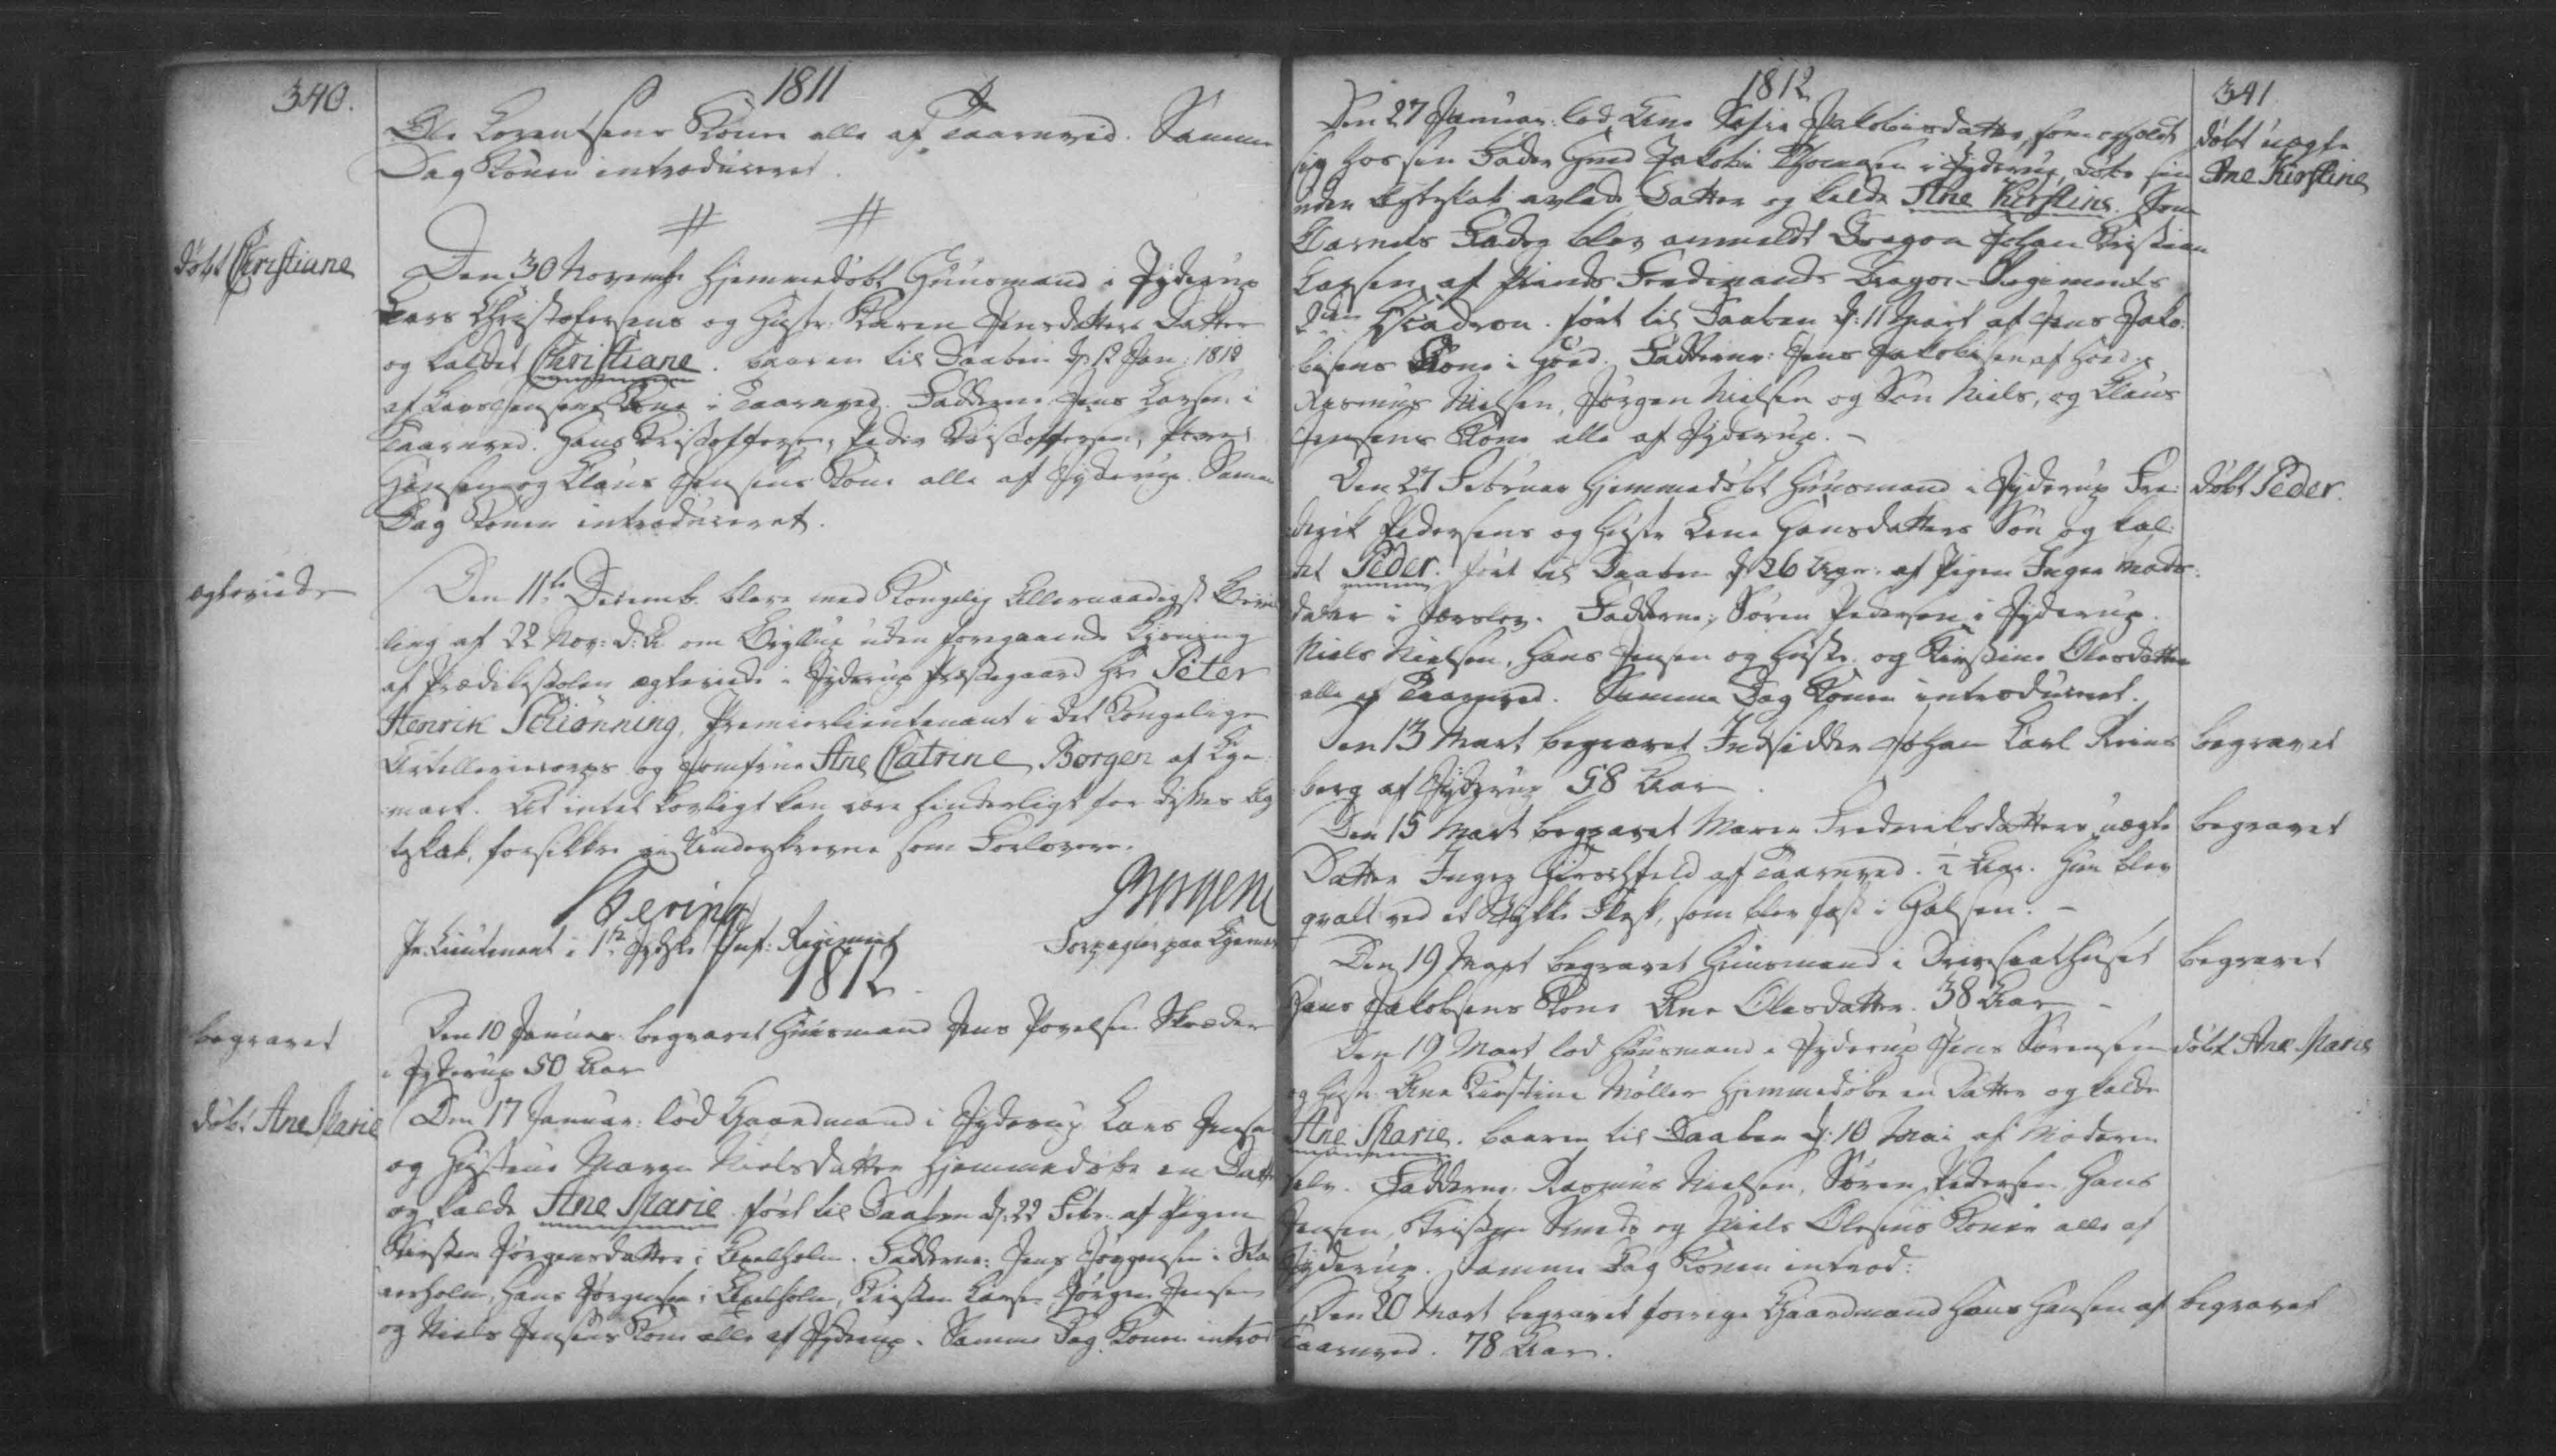 340.
1811
Ole Lorentsens Kone alle af Taarnved. Samme
Dag Konen introduceret.
døbt Christiane
Den 30 Novemb. hjemmedøbt Huusmand i Jyderup
Lars Christofersens og Hustr. Karen Jensdatters Datter
og kaldet Christiane. baaren til Daaben d. 12 Jan. 1812
af Kone i Taarnved. Fadderne Jens Larsen i
Taarnved. Hans Kristoffersen, Peder Kristoffersen,
Hansen og Klaus Jensens Kone alle af Jyderup. Samme
Dag Konen introduceret.
ægteviede
Den 11te Decemb. bleve med Kongelig Allernaadigst Bevil
ling af 22 Nov: d: A om Bryllup uden foregaaende Lysning
af Prædikestolen ægteviede i Jyderup Præstegaard Hr. Peter
Henrik Schiønning, Premierlieutenant i det Kongelige
Artilleriecorps og Jomfrue Ane Catrine Borgen af Lye
mark. At intet lovligt kan være hinderligt for dette Æg
teskab, forsikkre Underskrevne som Forlovere.
Bering
Borgen
Pr. Lieutenant i 1te Jydske Inf: Regiment
Forpagter paa
1812.
begravet
Den 10 Januar. begravet Huusmand Jens Povelsen Skræder
i Jyderup 50 Aar
døbt Ane Marie
Den 17 Januar: lod Gaardmand i Jyderup Lars Jensen
og Hustrue Maren Nielsdatter hjemmedøbe en Datter
og kalde Ane Marie. ført til Daaben d. 22 Febr. af Pigen
Kirsten Jørgensdatter i Axelholm. Fadderne: Jens Jørgensen i
Hans Jørgensen i Axelholm, Kristen Larsen, Jørgen Jensen
og Niels Jensens Kone alle af Jyderup. Samme Dag Konen introd
1812
341
Den 27 Januar. lod Ane Sofie Jakobsdatter, som opholdt
sig hos sin Fader Jakob Thomsen i Jyderup, døbe sin
uden Ægteskab avlede Datter og kalde Ane Kirstine. Som
Barnets Fader blev anmeldt Dragon Johan Kristian
Larsen af Prinds Ferdinands Dragon-Regiments
Escadron. ført til Daaben d: 11 Mart af Jens Jako:
bsens Kone i Fadderne: Jens Jakobsen af
Rasmus Nielsen, Jørgen Nielsen og Søn Niels, og Klaus
Jensens Kone alle af Jyderup. -
døbt uægte
Ane Kirstine
Den 27 Februar hjemmedøbt Huusmand i Jyderup Fre:
derik Pedersens og Hustr. Lene Hansdatters Søn og kal:
det Peder. ført til Daaben d. 26 af Pigen Inger Mads:
datter i Fadderne: Søren Pedersen i Jyderup.
Niels Nielsen, Hans Jensen og Hustr. og Kirstine Olesdatter
alle af Taarnved. Samme Dag Konen introduceret.
døbt Peder.
Den 13 Mart begravet Indsidder Johan Carl
berg af Jyderup 58 Aar
begravet
Den 15 Mart begravet Maren Frederiksdatters uægte
Datter Inger af Taarnved. Aar. Hun blev
qvalt ved et Stykke Flesk, som blev fast i Halsen. -
begravet
Den 19 Mart begravet Huusmand i
Hans Jakobsens Kone Ane Olesdatter. 38 Aar -
begravet
Den 19 Mart lod Huusmand i Jyderup Jens Sørensen
og Hustr. Ane Kirstine Møller hjemmedøbe en Datter og kalde
Ane Marie. baaren til Daaben d: 10 Mai af Moderen
selv. Fadderne. Rasmus Nielsen, Søren Pedersen, Hans
Jensen, Kristen Smeds og Niels Olesens Koner alle af
Jyderup. samme Dag Konen introd:
døbt Ane Marie
Den 20 Mart begravet forrige Gaardmand Hans Hansen af
Taarnved. 78 Aar.
begravet